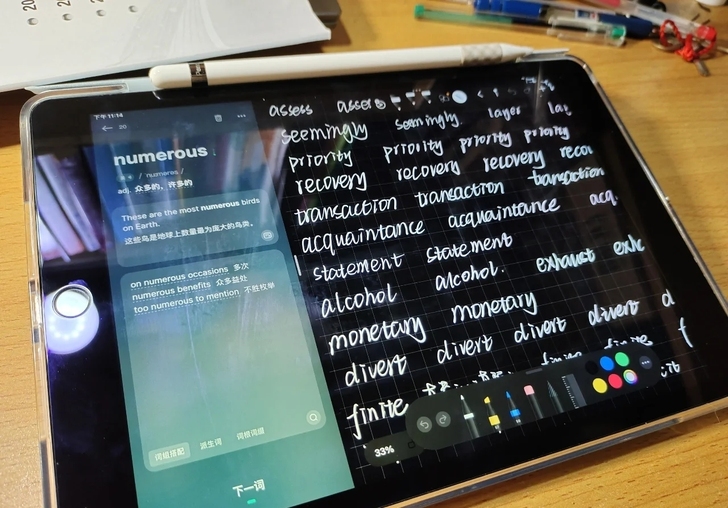 20
20
20
下午11:14
20
numerous
/ˈnumərəs/
adj. 众多的，许多的
These are the most numerous birds
on Earth.
这些鸟是地球上数量最为庞大的鸟类。
on numerous occasions 多次
numerous benefits 众多益处
too numerous to mention 不胜枚举
词组搭配 派生词 词根词缀
下一词
assess asses
seemingly seemingly layer
priority priority priority priority
recovery recovery recovery
transaction transaction transaction
acquaintance acquaintance acq.
statement statement
alcohol alcohol. exhaust
monetary monetary
divert divert divert divert d
finite finite f
33%